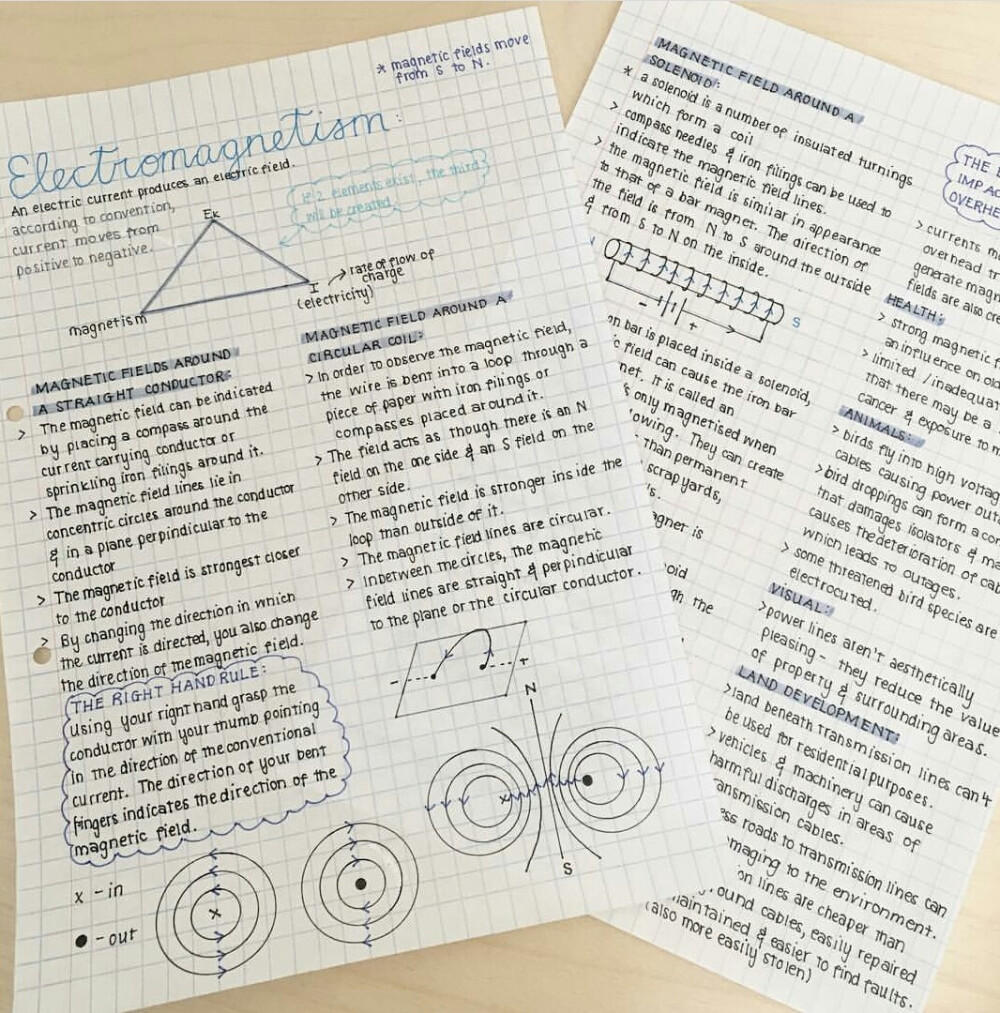 * magnetic fields move
from S to N.
Electromagnetism:
An electric current produces an electric field.
according to convention,
current moves from
positive to negative.
if 2 elements exist, the third
will be created.
Ek
I
→ rate of flow of
charge
(electricity)
magnetism
MAGNETIC FIELDS AROUND
A STRAIGHT CONDUCTOR:
> The magnetic field can be indicated
by placing a compass around the
current carrying conductor or
sprinkling iron filings around it.
> The magnetic field lines lie in
concentric circles around the conductor
& in a plane perpindicular to the
conductor
> The magnetic field is strongest closer
to the conductor
> By changing the direction in which
the current is directed, you also change
the direction of the magnetic field.
THE RIGHT HAND RULE:
Using your right hand grasp the
conductor with your thumb pointing
in the direction of the conventional
current. The direction of your bent
fingers indicates the direction of the
magnetic field.
x - in
● - out
x
MAGNETIC FIELD AROUND A
CIRCULAR COIL:
> In order to observe the magnetic field,
the wire is bent into a loop through a
piece of paper with iron filings or
compasses placed around it.
> The field acts as though there is an N
field on the one side & an S field on the
other side.
> The magnetic field is stronger inside the
loop than outside of it.
> The magnetic field lines are circular.
> Inbetween the circles, the magnetic
field lines are straight & perpindicular
to the plane or the circular conductor.
- +
N
x
S
MAGNETIC FIELD AROUND A
SOLENOID:
* a solenoid is a number of insulated turnings
which form a coil
> compass needles & iron filings can be used to
indicate the magnetic field lines.
> the magnetic field is similar in appearance
to that of a bar magnet. The direction of
the field is from N to S around the outside
& from S to N on the inside.
S
- +
bar is placed inside a solenoid,
field can cause the iron bar
It is called an
only magnetised when
They can create
than permanent
scrap yards,
is
the
THE
OVERHE
> currents
overhead
generate
fields are also
HEALTH:
> strong magnetic
an influence on
> limited /
that there may be a
cancer & exposure to
ANIMALS:
> birds fly into high
cables causing power
> bird droppings can form a
that damages isolators &
causes the deterioration of
which leads to outages.
> some threatened bird species are
electrocuted.
VISUAL:
> power lines aren't aesthetically
pleasing - they reduce the value
of property & surrounding areas.
LAND DEVELOPMENT:
> land beneath transmission lines can't
be used for residential purposes.
> vehicles & machinery can cause
harmful discharges in areas of
cables.
roads to transmission lines can
to the environment.
lines are cheaper than
cables, easily repaired
& easier to find faults.
(also more easily stolen)